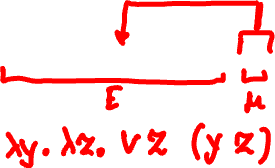 E μ
λy. λz. v z (y z)